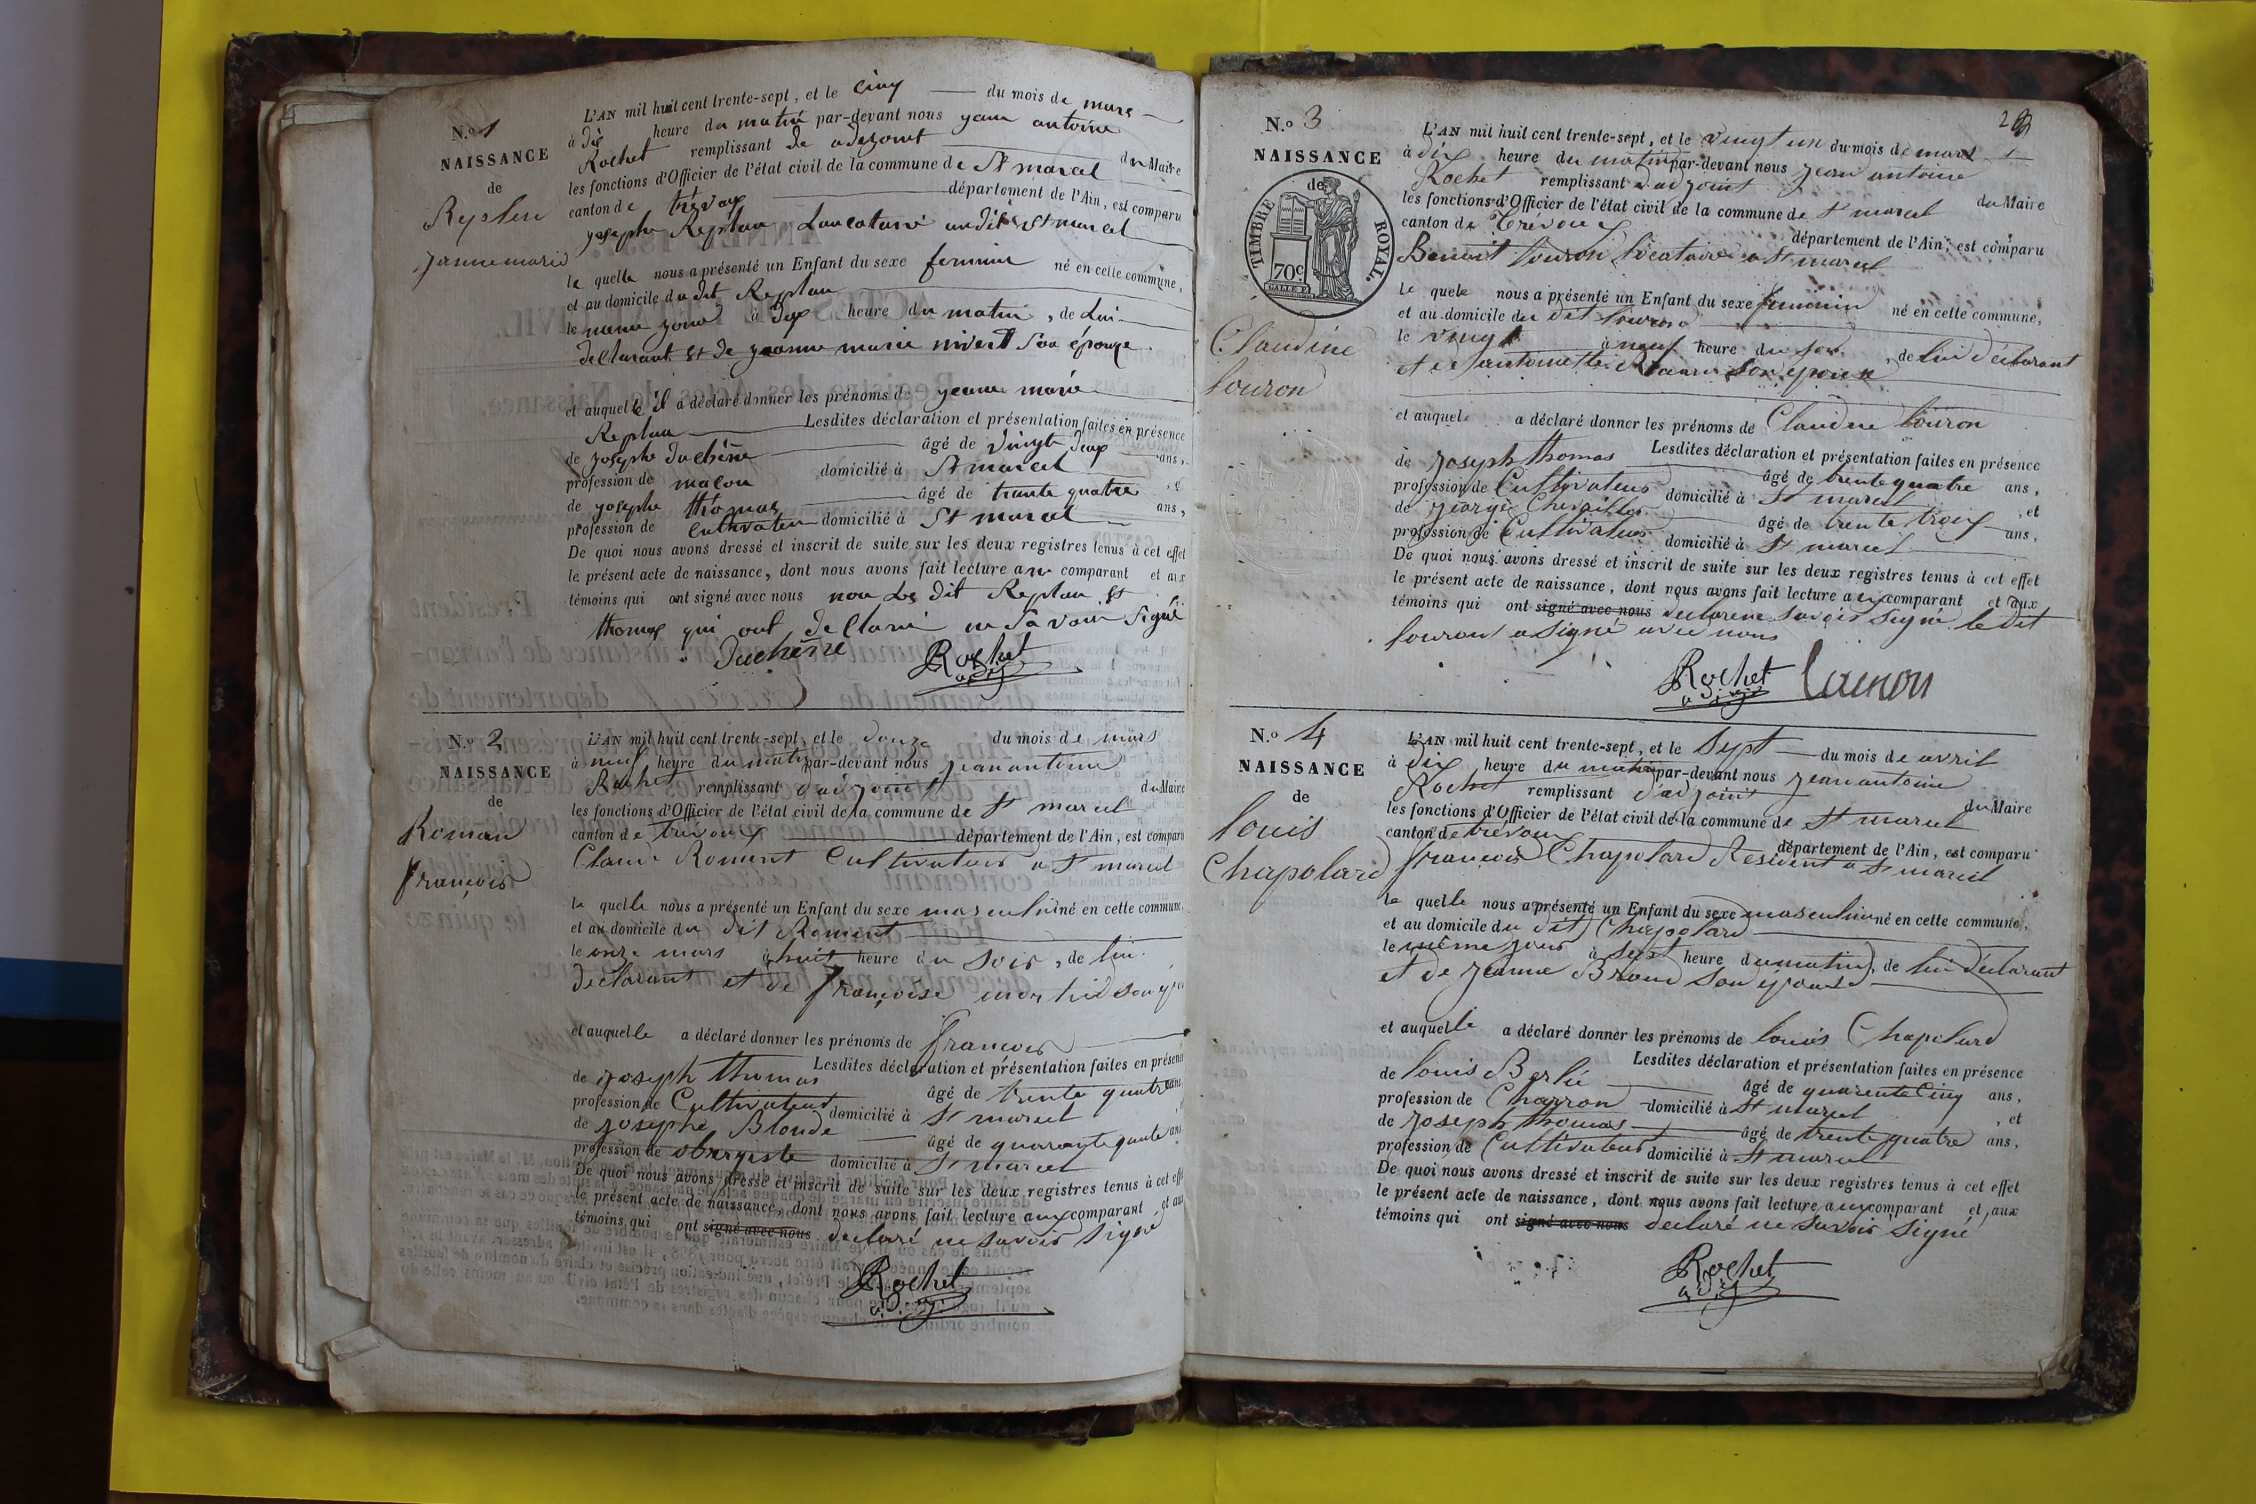 N.o 1
NAISSANCE
de
Replan
Jeanne marie
L'AN mil huit cent trente-sept, et le cinq du mois de mars
à dix heure du matin par-devant nous jean antoine
Rochet remplissant de adjoint du Maire
les fonctions d'Officier de l'état civil de la commune de St marcel
canton de trévoux département de l'Ain, est comparu
josephe Replan Laucataire audit St marcel
le quelle nous a présenté un Enfant du sexe feminin né en cette commune,
et au domicile du dit Replan
le meme jour à dix heure du matin, de Lui
declarant et de jeanne marie son épouze
et auquelle il a déclaré donner les prénoms de jeanne marie
Replan Lesdites déclaration et présentation faites en présence
de josephe duchêne âgé de vingt deux ans,
profession de maçon domicilié à St marcel, e
de josephe thomas âgé de trante quatre ans,
profession de cultivateur domicilié à St marcel
De quoi nous avons dressé et inscrit de suite sur les deux registres tenus à cet effet
le présent acte de naissance, dont nous avons fait lecture au comparant et aux
témoins qui ont signé avec nous non Les dit Replan et
thomas qui ont declaré ne Savoir Signé
Duchêne Rochet
adj
N.o 2
NAISSANCE
de
Roman
françois
L'AN mil huit cent trente-sept, et le douze du mois de mars
à neuf heure du matin par-devant nous jean antoine
Rochet remplissant d'adjoint du Maire
les fonctions d'Officier de l'état civil de la commune de St marcel
canton de trévoux département de l'Ain, est comparu
Claude Romant Cultivateur a St marcel
le quelle nous a présenté un Enfant du sexe masculin né en cette commune,
et au domicile du dit Romant
le onze mars à huit heure du soir, de lui
declarant et de françoise son
et auquelle a déclaré donner les prénoms de françois
Lesdites déclaration et présentation faites en présence
de joseph thomas âgé de trente quatre ans,
profession de Cultivateur domicilié à St marcel
de josephe Blonde âgé de quarante quatre ans
profession de obergiste domicilié à St marcel
De quoi nous avons dressé et inscrit de suite sur les deux registres tenus à cet effet
le présent acte de naissance, dont nous avons fait lecture aux comparant et aux
témoins qui ont signé avec nous declaré ne savoir signé
Rochet
adj
N.o 3
NAISSANCE
de
TIMBRE ROYAL.
70c
Claudine
louron
L'AN mil huit cent trente-sept, et le vingt un du mois de mars
à dix heure du matin par-devant nous jean antoine
Rochet remplissant d'adjoint du Maire
les fonctions d'Officier de l'état civil de la commune de St marcel
canton de Trévoux département de l'Ain, est comparu
Benoit louron locataire a St marcel
le quele nous a présenté un Enfant du sexe feminin né en cette commune,
et au domicile du dit louron
le vingt à neuf heure du soir, de lui déclarant
et de antoinette son épouse
et auquel a déclaré donner les prénoms de Claudine louron
Lesdites déclaration et présentation faites en présence
de joseph thomas âgé de trente quatre ans,
profession de Cultivateur domicilié à St marcel, et
de george âgé de trente trois ans,
profession de Cultivateur domicilié à St marcel
De quoi nous avons dressé et inscrit de suite sur les deux registres tenus à cet effet
le présent acte de naissance, dont nous avons fait lecture aux comparant et aux
témoins qui ont signé avec nous declarene savoir signé le dit
louron a signé avec nous
Rochet
adj
N.o 4
NAISSANCE
de
louis
Chapolard
L'AN mil huit cent trente-sept, et le sept du mois de avril
à dix heure du matin par-devant nous jean antoine
Rochet remplissant d'adjoint du Maire
les fonctions d'Officier de l'état civil de la commune de St marcel
canton de trévoux département de l'Ain, est comparu
françois Chapolard Resident a St marcel
le quelle nous a présenté un Enfant du sexe masculin né en cette commune,
et au domicile du dit Chapolard
le même jour à sept heure du matin, de lui déclarant
et de jeanne son épouse
et auquelle a déclaré donner les prénoms de louis Chapolard
Lesdites déclaration et présentation faites en présence
de louis Berlié âgé de quarente Cinq ans,
profession de Charron domicilié à St marcel, et
de joseph thomas âgé de trente quatre ans,
profession de Cultivateur domicilié à St marcel
De quoi nous avons dressé et inscrit de suite sur les deux registres tenus à cet effet
le présent acte de naissance, dont nous avons fait lecture aux comparant et aux
témoins qui ont signé avec nous declaré ne savoir signé
Rochet
adj